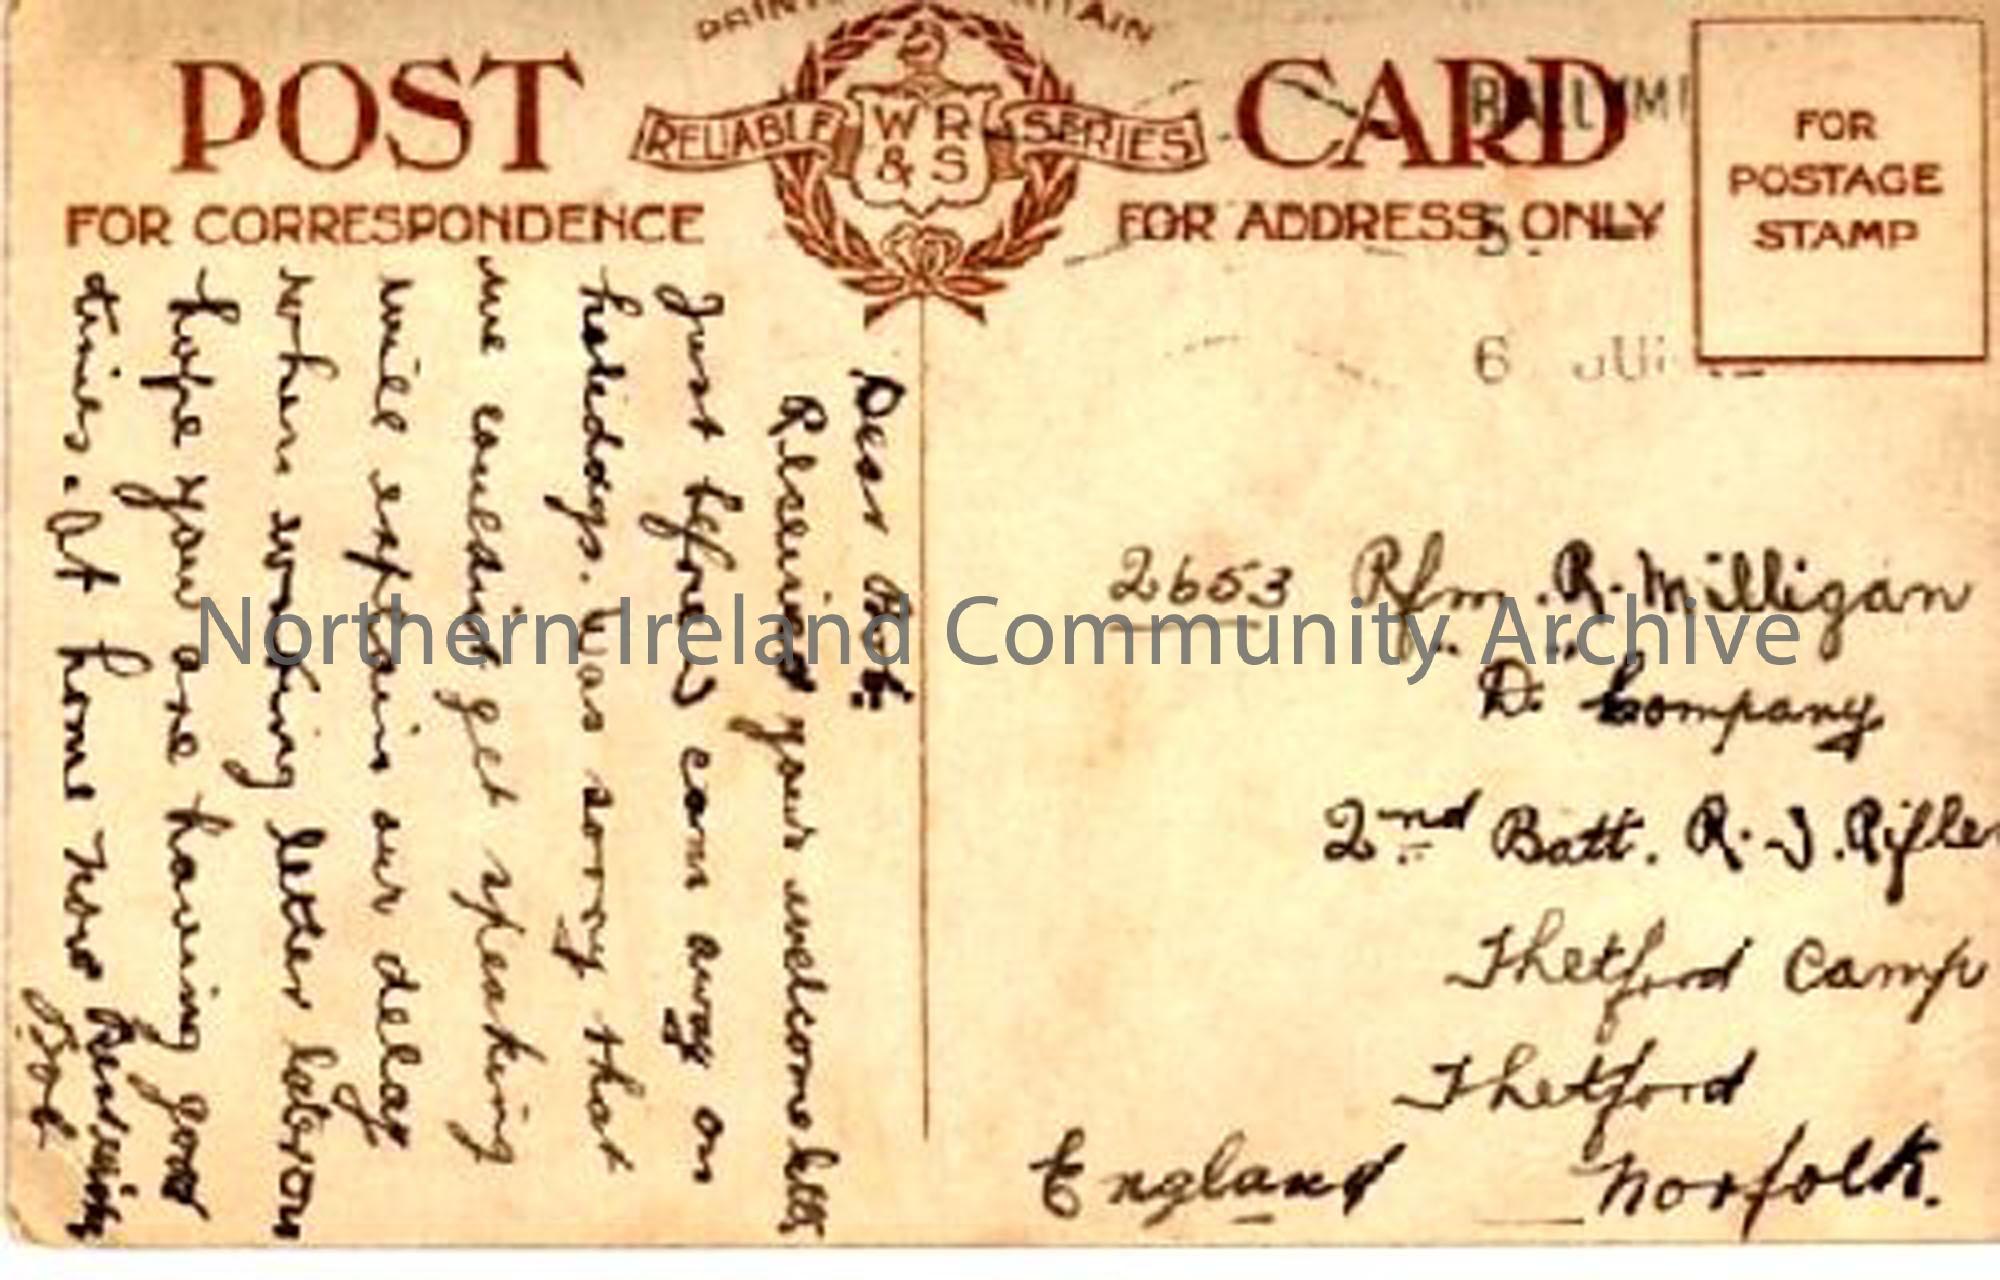 PRINT TAIN
POST CARD
RELIABLE WR & S SERIES
FOR CORRESPONDENCE
FOR ADDRESS ONLY
FOR
POSTAGE
STAMP
5.
6 JU
Dear Bob:
Received your welcome lettr
Just before I came away on
holidays. Was sorry that
we couldnt get speaking
will explain our delay
when writing letter later on
hope you are having good
times. At home now
Bob
2653 Rfm. R. Milligan
D. Company
2nd Batt. R. I. Rifles
Thetford Camp
Thetford
England Norfolk.
Northern Ireland Community Archive